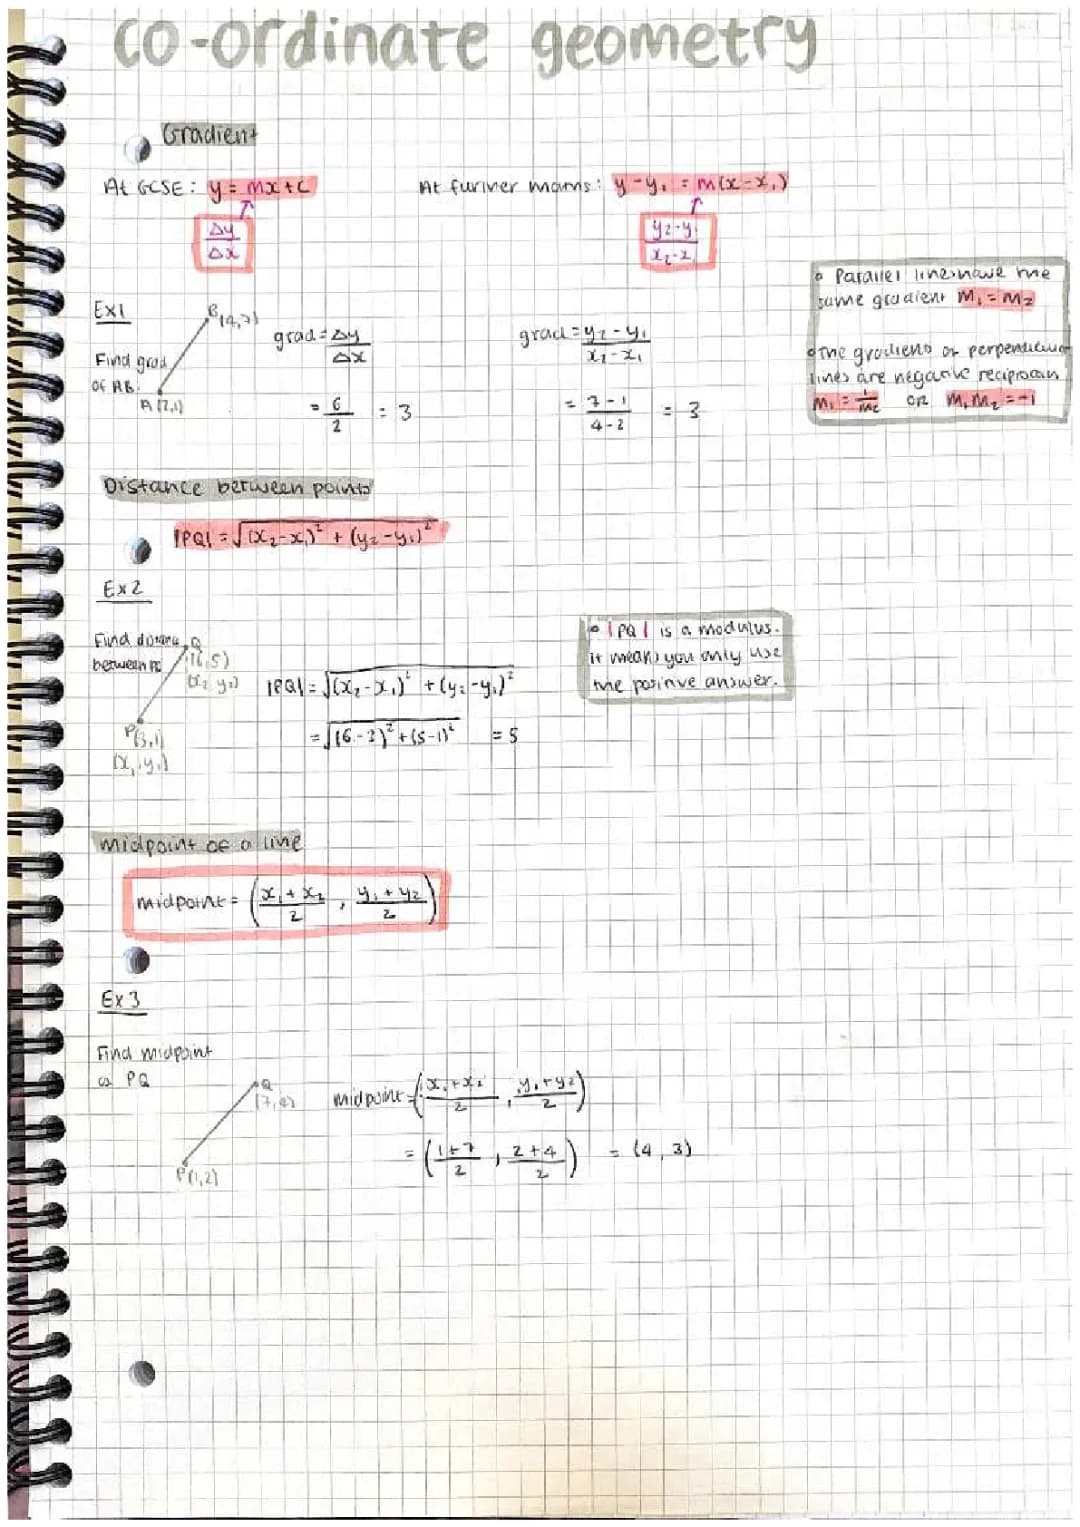 co-ordinate geometry
Gradient
At GCSE: y = mx + c
Δy
Δx
At further maths: y - y₁ = m(x - x₁)
y₂ - y₁
x₂ - x₁
• Parallel lines have the
same gradient m₁ = m₂
• The gradients of perpendicular
lines are negative reciprocals
m₁ = 1/m₂ OR m₁m₂ = -1
Ex 1
Find grad
of AB.
B(4,7)
A(2,1)
grad = Δy/Δx
= 6/2 = 3
grad = (y₂ - y₁)/(x₂ - x₁)
= (7 - 1)/(4 - 2) = 3
Distance between points
|PQ| = √((x₂ - x₁)² + (y₂ - y₁)²)
Ex 2
Find distance
between PQ
Q
(6,5)
(x₂ y₂)
P(3,1)
(x₁, y₁)
|PQ| = √((x₂ - x₁)² + (y₂ - y₁)²)
= √((6 - 3)² + (5 - 1)²) = 5
• |PQ| is a modulus.
it means you only use
the positive answer.
midpoint of a line
midpoint = ((x₁ + x₂)/2 , (y₁ + y₂)/2)
Ex 3
Find midpoint
of PQ
Q
(7,4)
P(1,2)
midpoint = ((x₁ + x₂)/2 , (y₁ + y₂)/2)
= ((1 + 7)/2 , (2 + 4)/2) = (4, 3)